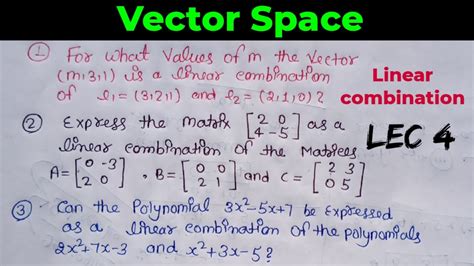 Vector Space
① For what values of m the vector
(m,3,1) is a linear combination
of e₁=(3,2,1) and e₂=(2,1,0)?
Linear
combination
② Express the matrix [2 0
4 -5] as a
linear combination of the Matrices
A=[0 -3
2 0], B=[0 0
2 1] and C=[2 3
0 5]
LEC 4
③ Can the Polynomial 3x²-5x+7 be Expressed
as a linear combination of the polynomials
2x²+7x-3 and x²+3x-5?